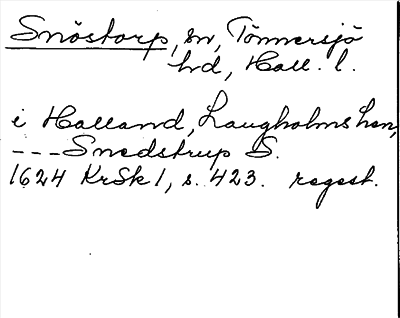 Snöstorp, sn, Tönnersjö
hd, Hall. l.
i Halland, Laugholms hen,
---Snedstrup S.
1624 KrSk 1, s. 423. regest.